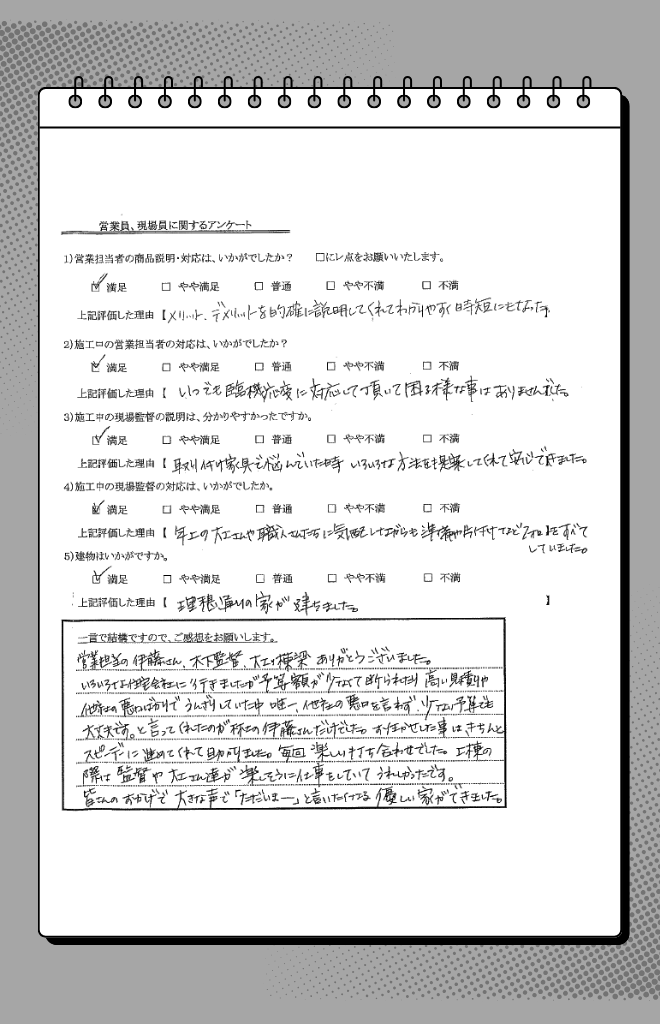 営業員、現場員に関するアンケート
1)営業担当者の商品説明・対応は、いかがでしたか？ □にレ点をお願いいたします。
☑ 満足 □ やや満足 □ 普通 □ やや不満 □ 不満
上記評価した理由【メリット、デメリットを的確に説明してくれてわかりやすく時短にもなった】
2)施工中の営業担当者の対応は、いかがでしたか？
☑ 満足 □ やや満足 □ 普通 □ やや不満 □ 不満
上記評価した理由【いつでも臨機応変に対応して頂いて困る様な事はありませんでした。
3)施工中の現場監督の説明は、分かりやすかったですか。
☑ 満足 □ やや満足 □ 普通 □ やや不満 □ 不満
上記評価した理由【取り付け家具で悩んでいた時いろいろな方法を提案してくれて安心できました。
4)施工中の現場監督の対応は、いかがでしたか。
☑ 満足 □ やや満足 □ 普通 □ やや不満 □ 不満
上記評価した理由【年上の大工さんや職人さんたちに気配しながらも準備や片付けなどフォローをすべて
していました。
5)建物はいかがですか。
☑ 満足 □ やや満足 □ 普通 □ やや不満 □ 不満
上記評価した理由【理想通りの家が建ちました。】
一言で結構ですので、ご感想をお願いします。
営業担当の伊藤さん、木下監督、大工の棟梁ありがとうございました。
いろいろな住宅会社に行きましたが予算額が少なくて断られたり高い見積りや
他社の悪口ばかりでうんざりしていた中唯一、他社の悪口を言わず、少ない予算でも
大丈夫です。と言ってくれたのが の伊藤さんだけでした。お任せした事はきちんと
スピーディに進めてくれて助かりました。毎回楽しい打ち合わせでした。上棟の
際は監督や大工さん達が楽しそうに仕事をしていてうれしかったです。
皆さんのおかげで大きな声で「ただいまー」と言いたくなる優しい家ができました。